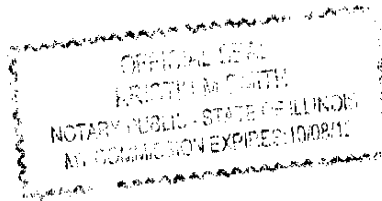 OFFICIAL SEAL
KRISTIN M SMITH
NOTARY PUBLIC - STATE OF ILLINOIS
MY COMMISSION EXPIRES:10/08/12